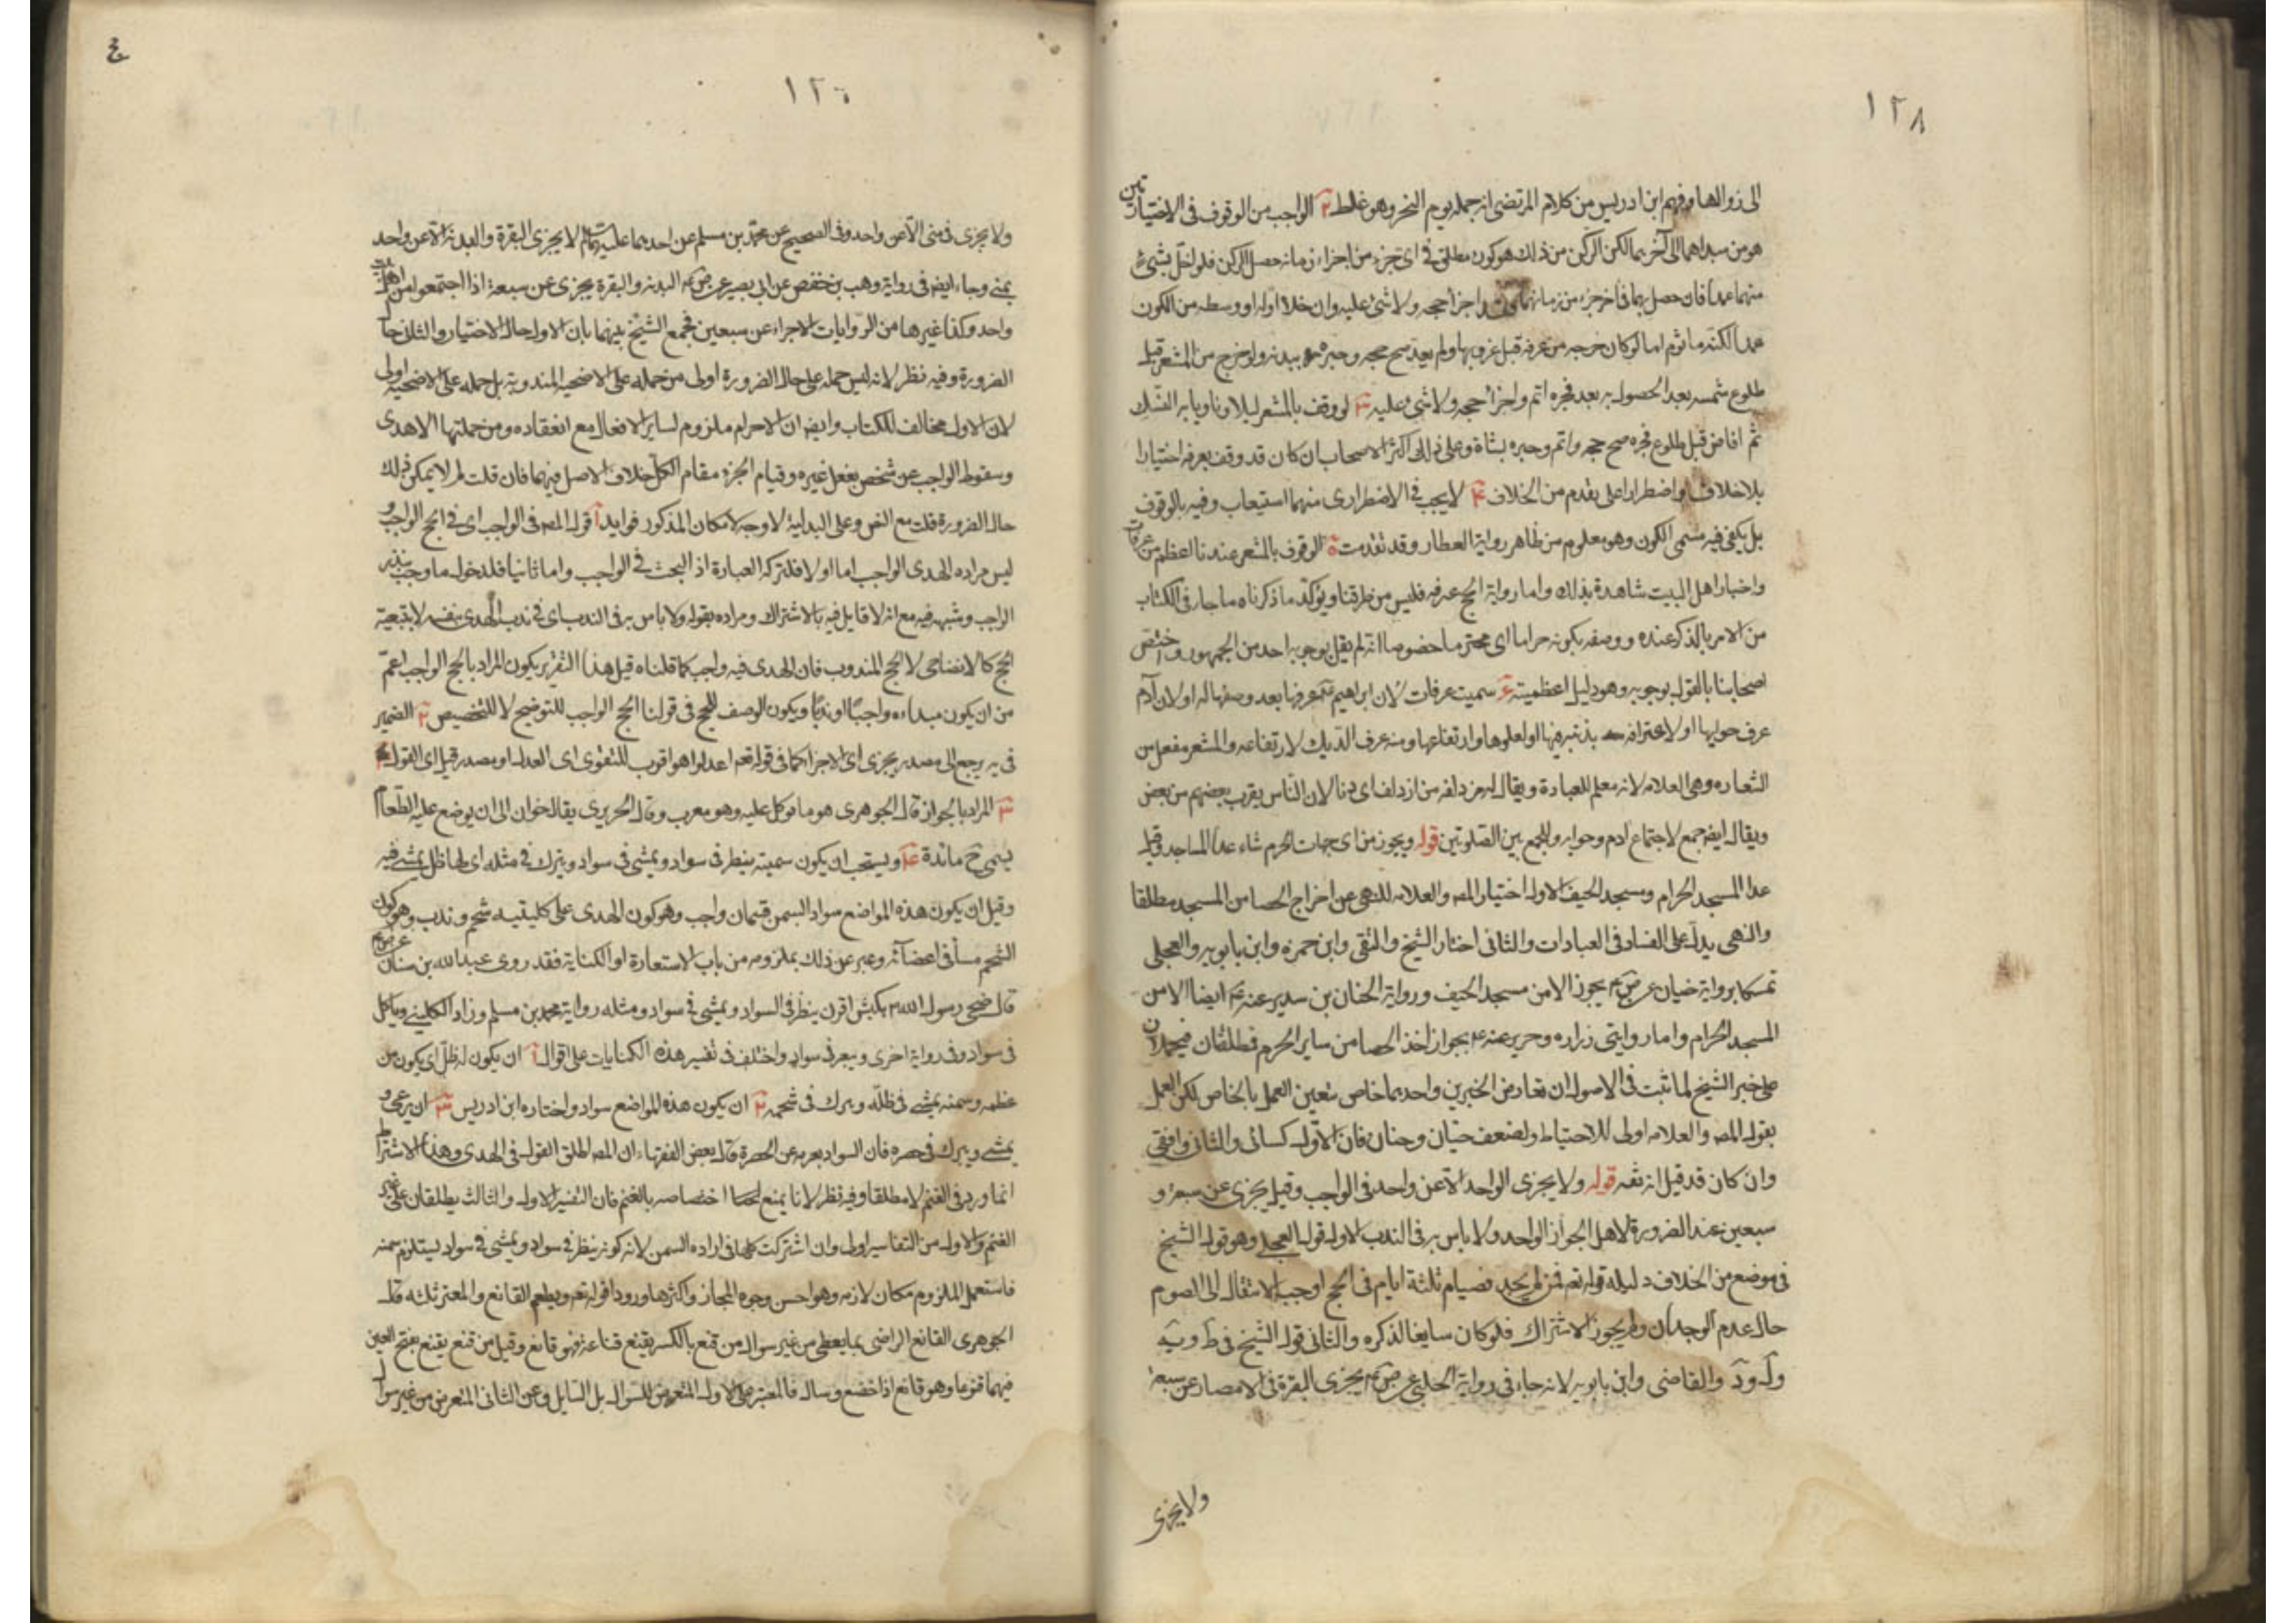 ١٢٨
الى زوالها وفهم ابن ادريس من كلام المرتضى انه جملة يوم النحر وهو غلط ٢ الواجب من الوقوف فى الاختياريين
هو من مبداهما الى آخرهما لكن الركن من ذلك هو كون مطلق فى اى جزء من اجزاء زمانه حصل الركن فلو اخل بشىء
منهما عمدا فان حصل بهما فى اخر جزء من زمانهما اجزأ حجه ولا شىء عليه وان خلا اوله او وسطه من الكون
عمدا لكنه مأثوم اما لو كان خرجه من عرفة قبل غروبها ولم يعد صح حجه وجبره ببدنة ولو خرج من المشعر قبل
طلوع شمسه بعد الحصول به بعد فجره اتم واجزأ حجه ولا شىء عليه ٣ لو وقف بالمشعر ليلا وناويا به النسك
ثم افاض قبل طلوع فجره صح حجه واتم وجبره بشاة وعلى ذلك اكثر الاصحاب ان كان قد وقف بعرفة اختيارا
بلا خلاف او اضطرارا على تقدم من الخلاف ۴ لا يجب فى الاضطرارى منهما استيعاب وفيه بالوقوف
بل يكفى فيه مسمى الكون وهو معلوم من ظاهر رواية العطار وقد تقدمت ٥ الوقوف بالمشعر عندنا اعظم من عرفات
واخبار اهل البيت شاهدة بذلك واما رواية الحج عرفة فليس من طرقنا ويؤكد ما ذكرناه ما جاء فى الكتاب
من الامر بالذكر عنده ووصفه بكونه حراما اى محترما خصوصا انه لم يقل بوجوبه احد من الجمهور واختص
اصحابنا بالقول بوجوبه وهو دليل اعظميته ۶ سميت عرفات لان ابراهيم عرفها بعد وصفها له او لان آدم
عرف حوا بها او لاعترافه بذنبه فيها او لعلوها وارتفاعها ومنه عرف الديك لارتفاعه والمشعر مفعل من
الشعاره وهى العلامه لانه معلم للعبادة ويقال له مزدلفه من ازدلف اى دنا لان الناس يقرب بعضهم من بعض
ويقال ايضا جمع لاجتماع ادم وحوا به وللجمع بين الصلوتين قوله ويجوز من اى جهات الحرم شاء عدا المساجد وقيل
عدا المسجد الحرام ومسجد الخيف الاول اختيار المصـ والعلامه للنهى عن اخراج الحصا من المسجد مطلقا
والنهى يدل على الفساد فى العبادات والثانى اختار الشيخ والتقى وابن حمزه وابن بابويه والعجلى
تمسكا برواية حنان عن ص ع يجوز الا من مسجد الخيف ورواية الحنان بن سدير عنه ع ايضا الا من
المسجد الحرام واما روايتى زراره وحريز عنه ع بجواز اخذ الحصا من ساير الحرم فمطلقتان فيحملان
على خبر الشيخ لما ثبت فى الاصول ان تعارض الخبرين واحدهما خاص تعين العمل بالخاص لكن العمل
بقول المصـ والعلامه اولى للاحتياط ولضعف حنان وحنان فان الاول كسائى والثانى واقفى
وان كان قد قيل انه ثقه قوله ولا يجزى الواحد الا عن واحد فى الواجب وقيل يجزى عن سبعة و
سبعين عند الضرورة لاهل الخوان الواحد ولا باس به فى الندب الاول قول العجلى وهو قول الشيخ
فى موضع من الخلاف دليله قوله تع فمن لم يجد فصيام ثلثة ايام فى الحج اوجب الانتقال الى الصوم
حال عدم الوجدان ولم يجوز الاشتراك فلو كان سايغا لذكره والثانى قول الشيخ فى ط و يه
والقاضى وابن بابويه لانه جاء فى رواية الحلبى عن ص ع يجزى البقرة فى الامصار عن سبعة
ولا يجزى
١٢٦
ولا يجزى فى منى الا عن واحد وفى الصحيح عن محمد بن مسلم عن احدهما عليهما السلام لا يجزى البقرة والبدنة الا عن واحد
بمنى وجاء ايضا فى رواية وهب بن حفص عن ابى بصير عن ص ع البدنة والبقرة يجزى عن سبعة اذا اجتمعوا من اهل بيت
واحد وكذا غيرها من الروايات الاجزاء عن سبعين فجمع الشيخ بينهما بان الاول حال الاختيار والثانى حال
الضرورة وفيه نظر لانه ليس حمله على حال الضرورة اولى من حمله على الاضحية المندوبة بل حمله على الاضحية اولى
لان الاول مخالف للكتاب وايضا ان الاحرام ملزوم لساير الافعال مع انعقاده ومن جملتها الاهدى
وسقوط الواجب عن شخص بفعل غيره وقيام الجزء مقام الكل خلاف الاصل فيهما فان قلت لم لا يمكن ذلك
حال الضرورة قلت مع النص وعلى البدلية لا وجه لامكان المذكور فوايد آ قول المصـ فى الواجب اى فى الحج الواجب و
ليس مراده الهدى الواجب اما اولا فلتركه العبارة اذ البحث فى الواجب واما ثانيا فلدخول ما وجب بنذر
الواجب وشبهه فيه مع انه لا قايل فيه بالاشتراك ومراده بقوله ولا باس به فى الندب اى فى ندب الهدى بنفسه لا بتبعية
الحج كالاضاحى لا الحج المندوب فان الهدى فيه واجب كما قلناه قيل هذا التقرير يكون المراد بالحج الواجب اعم
من ان يكون مبداءه واجبا او ندبا ويكون الوصف للحج فى قولنا الحج الواجب للتوضيح لا للتخصيص ٢ الضمير
فى به يرجع الى مصدر يجزى اى الاجزا كما فى قوله تع اعدلوا هو اقرب للتقوى اى العدل او مصدر قيل اى القول
٣ المراد بالخوان قال الجوهرى هو ما يوكل عليه وهو معرب وقال الحريرى يقال خوان الى ان يوضع عليه الطعام
يسمى ح مائدة ۴ ويستحب ان يكون سمينه ينظر فى سواد ويمشى فى سواد ويبرك فى مثله اى لها ظل يمشى فيه
وقيل ان يكون هذه المواضع سواد السمن قسمان واجب وهو كون الهدى على كليتيه شحم وندب وهو كون
الشحم مسا فى اعضائه وعبر عن ذلك بملزومه من باب الاستعارة او الكناية فقد روى عبد الله بن سنان عن ص ع
قال ضحى رسول الله ص بكبش اقرن ينظر فى السواد ويمشى فى سواد ومثله رواية محمد بن مسلم وزاد الكلينى وياكل
فى سواد وفى رواية اخرى ويبعر فى سواد واختلف فى تفسير هذه الكنايات على اقوال آ ان يكون له ظل اى يكون من
عظمه وسمنه يمشى فى ظله ويبرك فى شحمه ٢ ان يكون هذه المواضع سواد واختاره ابن ادريس ٣ ان يرعى و
يمشى ويبرك فى خضره فان السواد يعبر به عن الخضرة قال بعض الفقهاء ان المصـ اطلق القول فى الهدى وهذا الاشتراط
انما ورد فى الغنم لا مطلقا وفيه نظر لانا يمنع اختصاصه بالغنم فان التفسير الاول والثالث يطلقان على غير
الغنم والاول من التفاسير اولى وان اشتركت كلها فى اراده السمن لانه كونه ينظر فى سواد ويمشى فى سواد يستلزم سمنه
فاستعمل الملزوم مكان لازمه وهو احسن وجوه المجاز واكثرها ورودا قوله تع ويطعم القانع والمعتر ثلثه قال
الجوهرى القانع الراضى بما يعطى من غير سوال من قنع بالكسر يقنع قناعة فهو قانع وقيل من قنع يقنع بفتح العين
فيهما قنوعا وهو قانع اذا خضع وسال فالمعتر على الاول المتعرض للسوال بل السايل وعن الثانى المتعرض من غير سوال